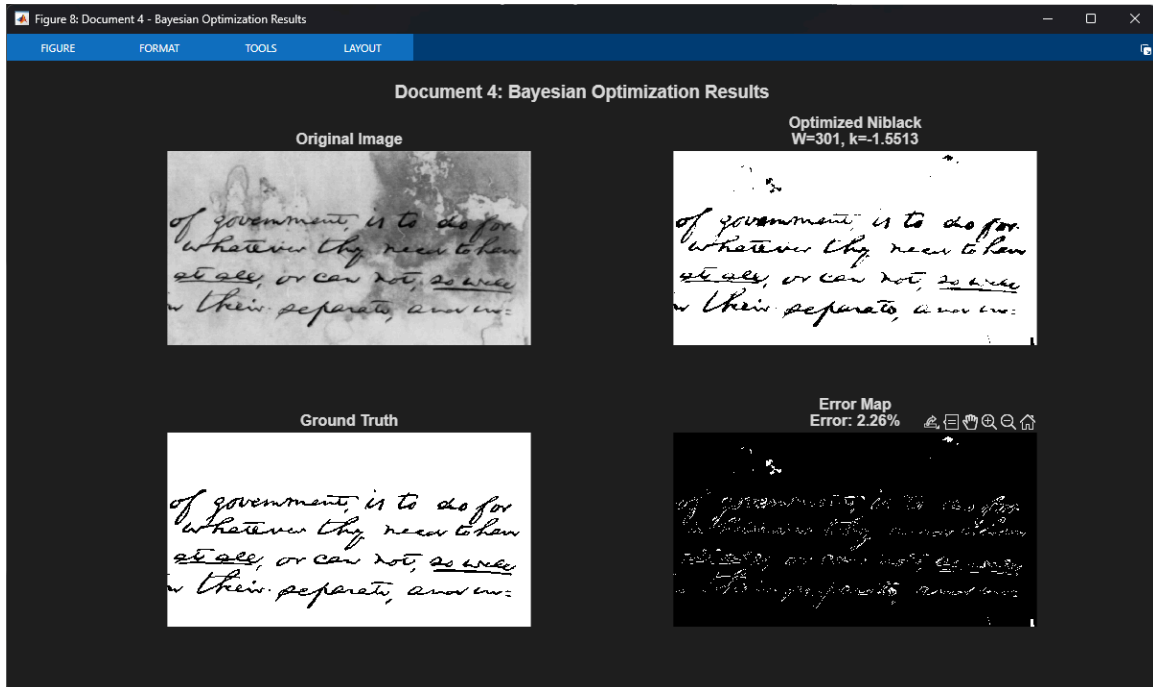 Figure 8: Document 4 - Bayesian Optimization Results
FIGURE FORMAT TOOLS LAYOUT
Document 4: Bayesian Optimization Results
Original Image
of government, is to do for
whatever they need to have
at all, or can not, so well
their separate, and in=
Optimized Niblack
W=301, k=-1.5513
of government, is to do for
whatever they need to have
at all, or can not, so well
their separate, and in=
Ground Truth
of government, is to do for
whatever they need to have
at all, or can not, so well
their separate, and in=
Error Map
Error: 2.26%